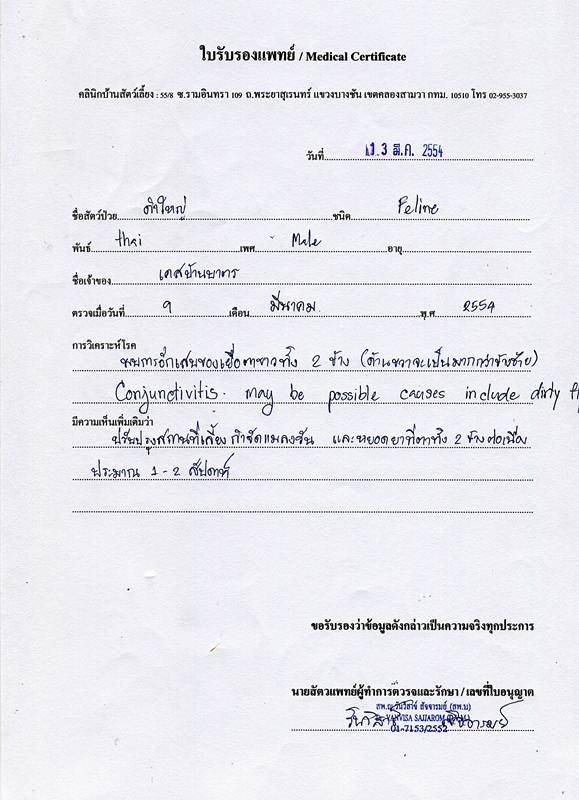 ใบรับรองแพทย์ / Medical Certificate
คลินิกบ้านสัตว์เลี้ยง : 55/8 ซ.รามอินทรา 109 ถ.พระยาสุเรนทร์ แขวงบางชัน เขตคลองสามวา กทม. 10510 โทร 02-955-3037
วันที่ 1 3 มี.ค. 2554
ชื่อสัตว์ป่วย ดำใหญ่ ชนิด Feline
พันธ์ thai เพศ Male อายุ
ชื่อเจ้าของ เคสบ้านบาทร
ตรวจเมื่อวันที่ 9 เดือน มีนาคม พ.ศ 2554
การวิเคราะห์โรค
พบการอักเสบของเยื่อตาขาวทั้ง 2 ข้าง (ด้านขวาจะเป็นมากกว่าข้างซ้าย)
Conjunctivitis. may be possible causes include dirty
มีความเห็นเพิ่มเติมว่า
ปรับปรุงสถานที่เลี้ยง กำจัดแมลงวัน และหยอดยาที่ตาทั้ง 2 ข้างต่อเนื่อง
ประมาณ 1 - 2 สัปดาห์
ขอรับรองว่าข้อมูลดังกล่าวเป็นความจริงทุกประการ
นายสัตวแพทย์ผู้ทำการตวรจและรักษา / เลขที่ใบอนุญาต
สพ.ญ.วันวิสาข์ สัจจารมย์ (สพ.บ)
VANVISA SAJJAROM
01-7153/2552